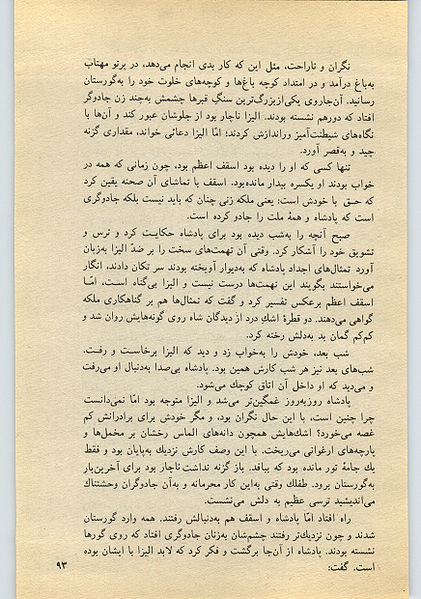 نگران و ناراحت، مثل این که کار بدی انجام می‌دهد، در پرتو مهتاب
به‌باغ درآمد و در امتداد کوچه باغ‌ها و کوچه‌های خلوت خود را به‌گورستان
رسانید. آن‌جاروی یکی‌ازبزرگ‌ترین سنگ قبرها چشمش به‌چند زن جادوگر
افتاد که دورهم نشسته بودند. الیزا ناچار بود از جلوشان عبور کند و آن‌ها با
نگاه‌های شیطنت‌آمیز وراندازش کردند؛ امّا الیزا دعائی خواند، مقداری گزنه
چید و به‌قصر آورد.
تنها کسی که او را دیده بود اسقف اعظم بود، چون زمانی که همه در
خواب بودند او یکسره بیدار مانده‌بود. اسقف با تماشای آن صحنه یقین کرد
که حق با خودش است: یعنی ملکه زنی چنان که باید نیست بلکه جادوگری
است که پادشاه و همهٔ ملت را جادو کرده است.
صبح آنچه را به‌شب دیده بود برای پادشاه حکایت کرد و ترس و
تشویق خود را آشکار کرد. وقتی آن تهمت‌های سخت را بر ضدّ الیزا به‌زبان
آورد تمثال‌های اجداد پادشاه که به‌دیوار آویخته بودند سر تکان دادند، انگار
می‌خواستند بگویند این تهمت‌ها درست نیست و الیزا بی‌گناه است، امّا
اسقف اعظم برعکس تفسیر کرد و گفت که تمثال‌ها هم بر گناهکاری ملکه
گواهی می‌دهند. دو قطرهٔ اشك درد از دیدگان شاه روی گونه‌هایش روان شد و
کم‌کم گمان بد به‌دلش رخنه کرد.
شب بعد، خودش را به‌خواب زد و دید که الیزا برخاست و رفت.
شب‌های بعد نیز هر شب کارش همین بود. پادشاه بی‌صدا به‌دنبال او می‌رفت
و می‌دید که او داخل آن اتاق کوچك می‌شود.
پادشاه روزبه‌روز غمگین‌تر می‌شد و الیزا متوجه بود امّا نمی‌دانست
چرا چنین است، با این حال نگران بود، و مگر خودش برای برادرانش کم
غصه می‌خورد؟ اشك‌هایش همچون دانه‌های الماس رخشان بر مخمل‌ها و
پارچه‌های ارغوانی می‌ریخت. با این وصف کارش نزدیك به‌پایان بود و فقط
یك جامهٔ تور مانده بود که ببافد. باز گزنه نداشت ناچار بود برای آخرین‌بار
به‌گورستان برود. طفلك وقتی به‌این کار محرمانه و به‌آن جادوگران وحشتناك
می‌اندیشید ترسی عظیم به دلش می‌نشست.
راه افتاد امّا پادشاه و اسقف هم به‌دنبالش رفتند. همه وارد گورستان
شدند و چون نزدیك‌تر رفتند چشم‌شان به‌زنان جادوگری افتاد که روی گورها
نشسته بودند. پادشاه از آن‌جا برگشت و فکر کرد که لابد الیزا با ایشان بوده
است. گفت:
۹۳